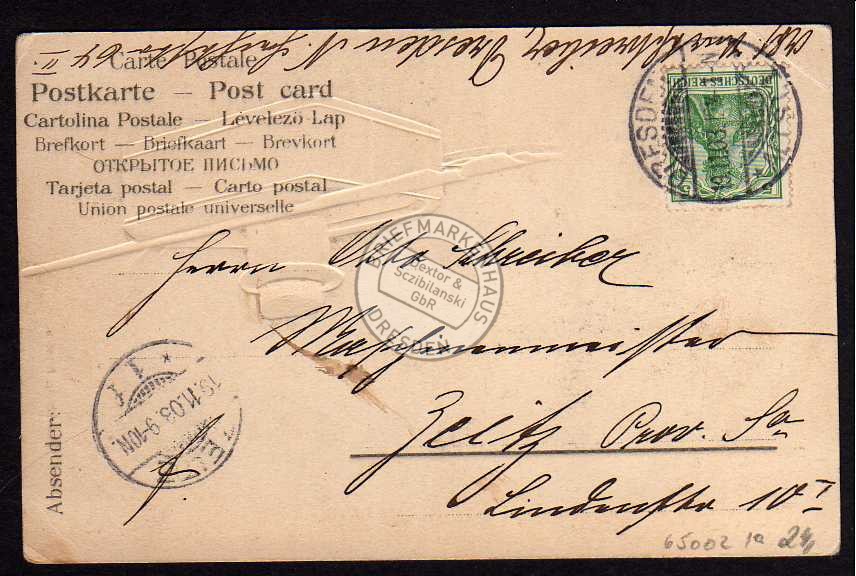 Carte Postale
Postkarte — Post card
Cartolina Postale — Levelező-Lap
Brefkort — Briefkaart — Brevkort
ОТКРЫТОЕ ПИСЬМО
Tarjeta postal — Carto postal
Union postale universelle
Schreiber, Dresden N.
DEUTSCHES REICH
5
5
DRESDEN
11.03
BRIEFMARKENHAUS
Dextor &
Sczibilanski
GbR
DRESDEN
Herrn Otto Schreiber
Maschinenmeister
Zeitz Prov. Sa
Lindenstr 10 I
Absender:
11.03. 9-10N
65002 1a